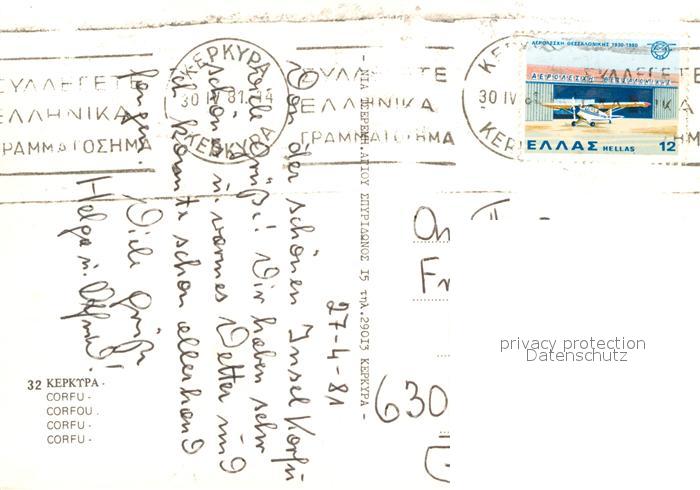 ΚΕΡΚΥΡΑ
30 IV 81
ΚΕΡΚΥΡΑ
ΣΥΛΛΕΓΕΤΕ
ΕΛΛΗΝΙΚΑ
ΓΡΑΜΜΑΤΟΣΗΜΑ
ΣΥΛΛΕΓΕΤΕ
ΕΛΛΗΝΙΚΑ
ΓΡΑΜΜΑΤΟΣΗΜΑ
30 IV
ΑΕΡΟΛΕΣΧΗ ΘΕΣΣΑΛΟΝΙΚΗΣ 1930-1980
ΑΕΡΟΛΕΣΧΗ ΘΕΣΣΑΛΟΝΙΚΗΣ
ΕΛΛΑΣ HELLAS 12
27-4-81
Von der schönen Insel Korfu
viele Grüße! Wir haben sehr
schönes u. warmes Wetter und
ich konnte schon allerhand
fangen. Viele Grüße
Helga u.
ΣΠΥΡΙΔΩΝΟΣ 15 τηλ. 29013 ΚΕΡΚΥΡΑ -
An
Fr
630
32 ΚΕΡΚΥΡΑ -
CORFU -
CORFOU -
CORFU -
CORFU -
privacy protection
Datenschutz